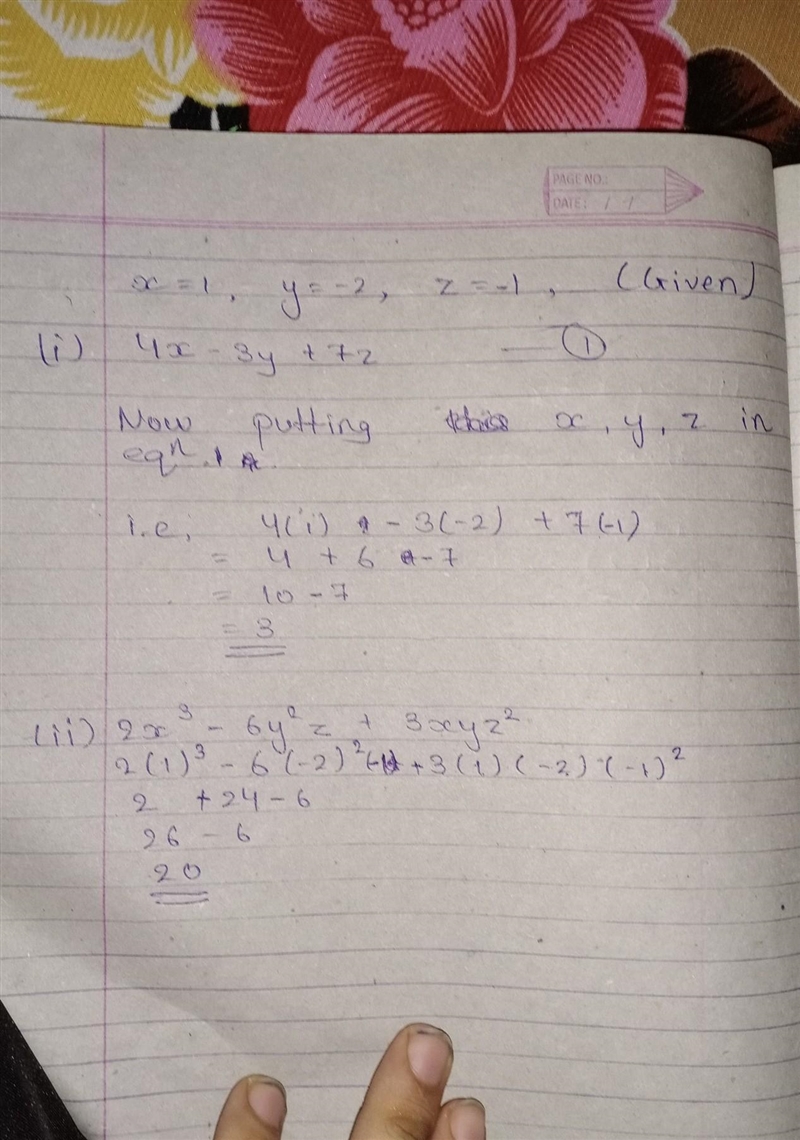 PAGE NO.:
DATE: / /
x = 1, y = -2, z = -1, (Given)
(i) 4x - 3y + 7z — ①
Now putting x, y, z in
eqⁿ. 1
i.e, 4(1) - 3(-2) + 7(-1)
= 4 + 6 - 7
= 10 - 7
= 3
(ii) 2x³ - 6y²z + 3xyz²
2(1)³ - 6(-2)²(-1) + 3(1)(-2)·(-1)²
2 + 24 - 6
26 - 6
20